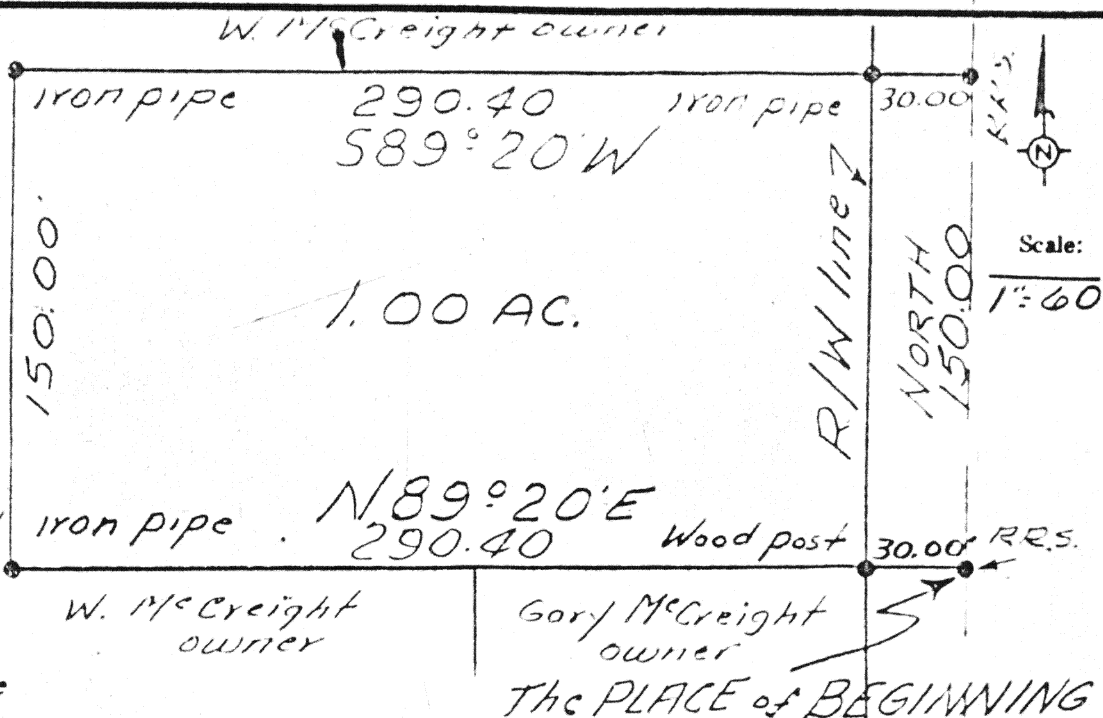 W. McCreight owner
iron pipe
290.40
iron pipe
30.00
S89°20'W
RRS
N
Scale:
1"=60
150.00'
1.00 AC.
R/W line
NORTH
150.00
N89°20'E
iron pipe
290.40
Wood post
30.00'
R.R.S.
W. McCreight
owner
Gary McCreight
owner
The PLACE of BEGINNING